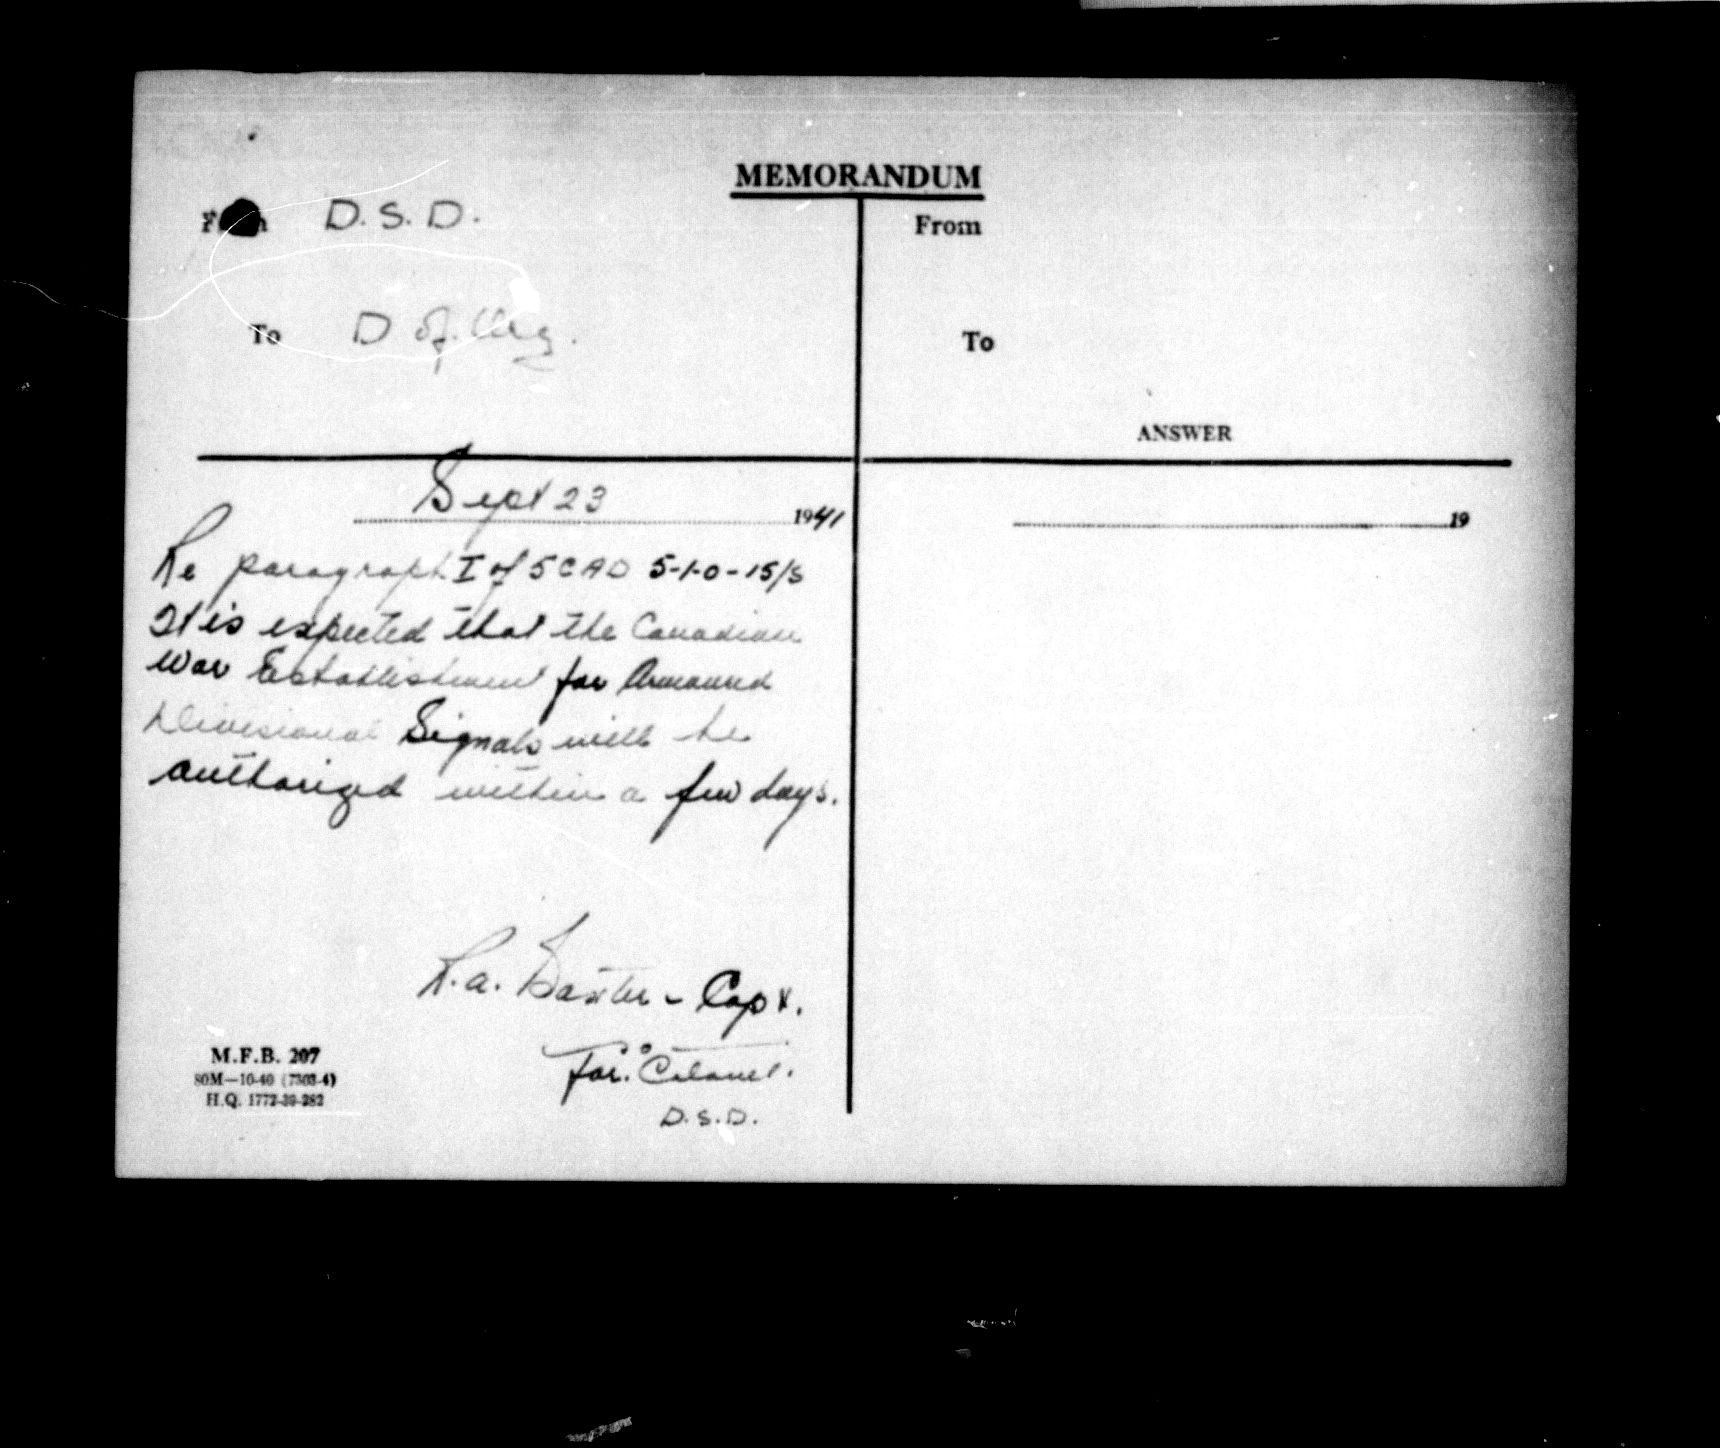 MEMORANDUM
From D.S.D.
To D of. Org.
Sept 23 1941
Re paragraph I of 5CAD 5-1-0-15/S
It is expected that the Canadian
War Establishment for Armoured
Divisional Signals will be
authorized within a few days.
R.A. Baxter - Capt.
For: Colonel.
D.S.D.
M.F.B. 207
80M—10-40 (7303-4)
H.Q. 1772-39-282
From
To
ANSWER
19